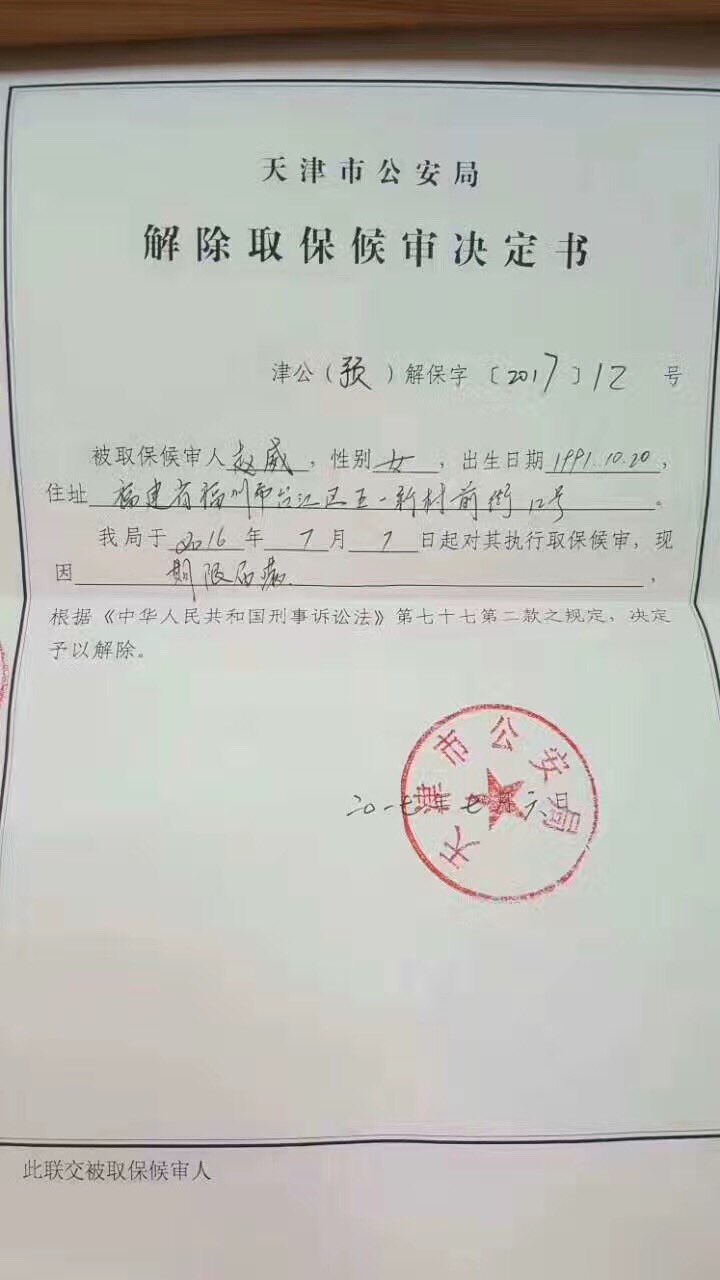 天津市公安局
解除取保候审决定书
津公（预）解保字〔2017〕12号
被取保候审人赵威，性别女，出生日期1991.10.20，
住址福建省福州市台江区五一新村前街12号。
我局于2016年7月7日起对其执行取保候审，现
因期限届满，
根据《中华人民共和国刑事诉讼法》第七十七第二款之规定，决定
予以解除。
天津市公安局
二〇一七年七月六日
此联交被取保候审人